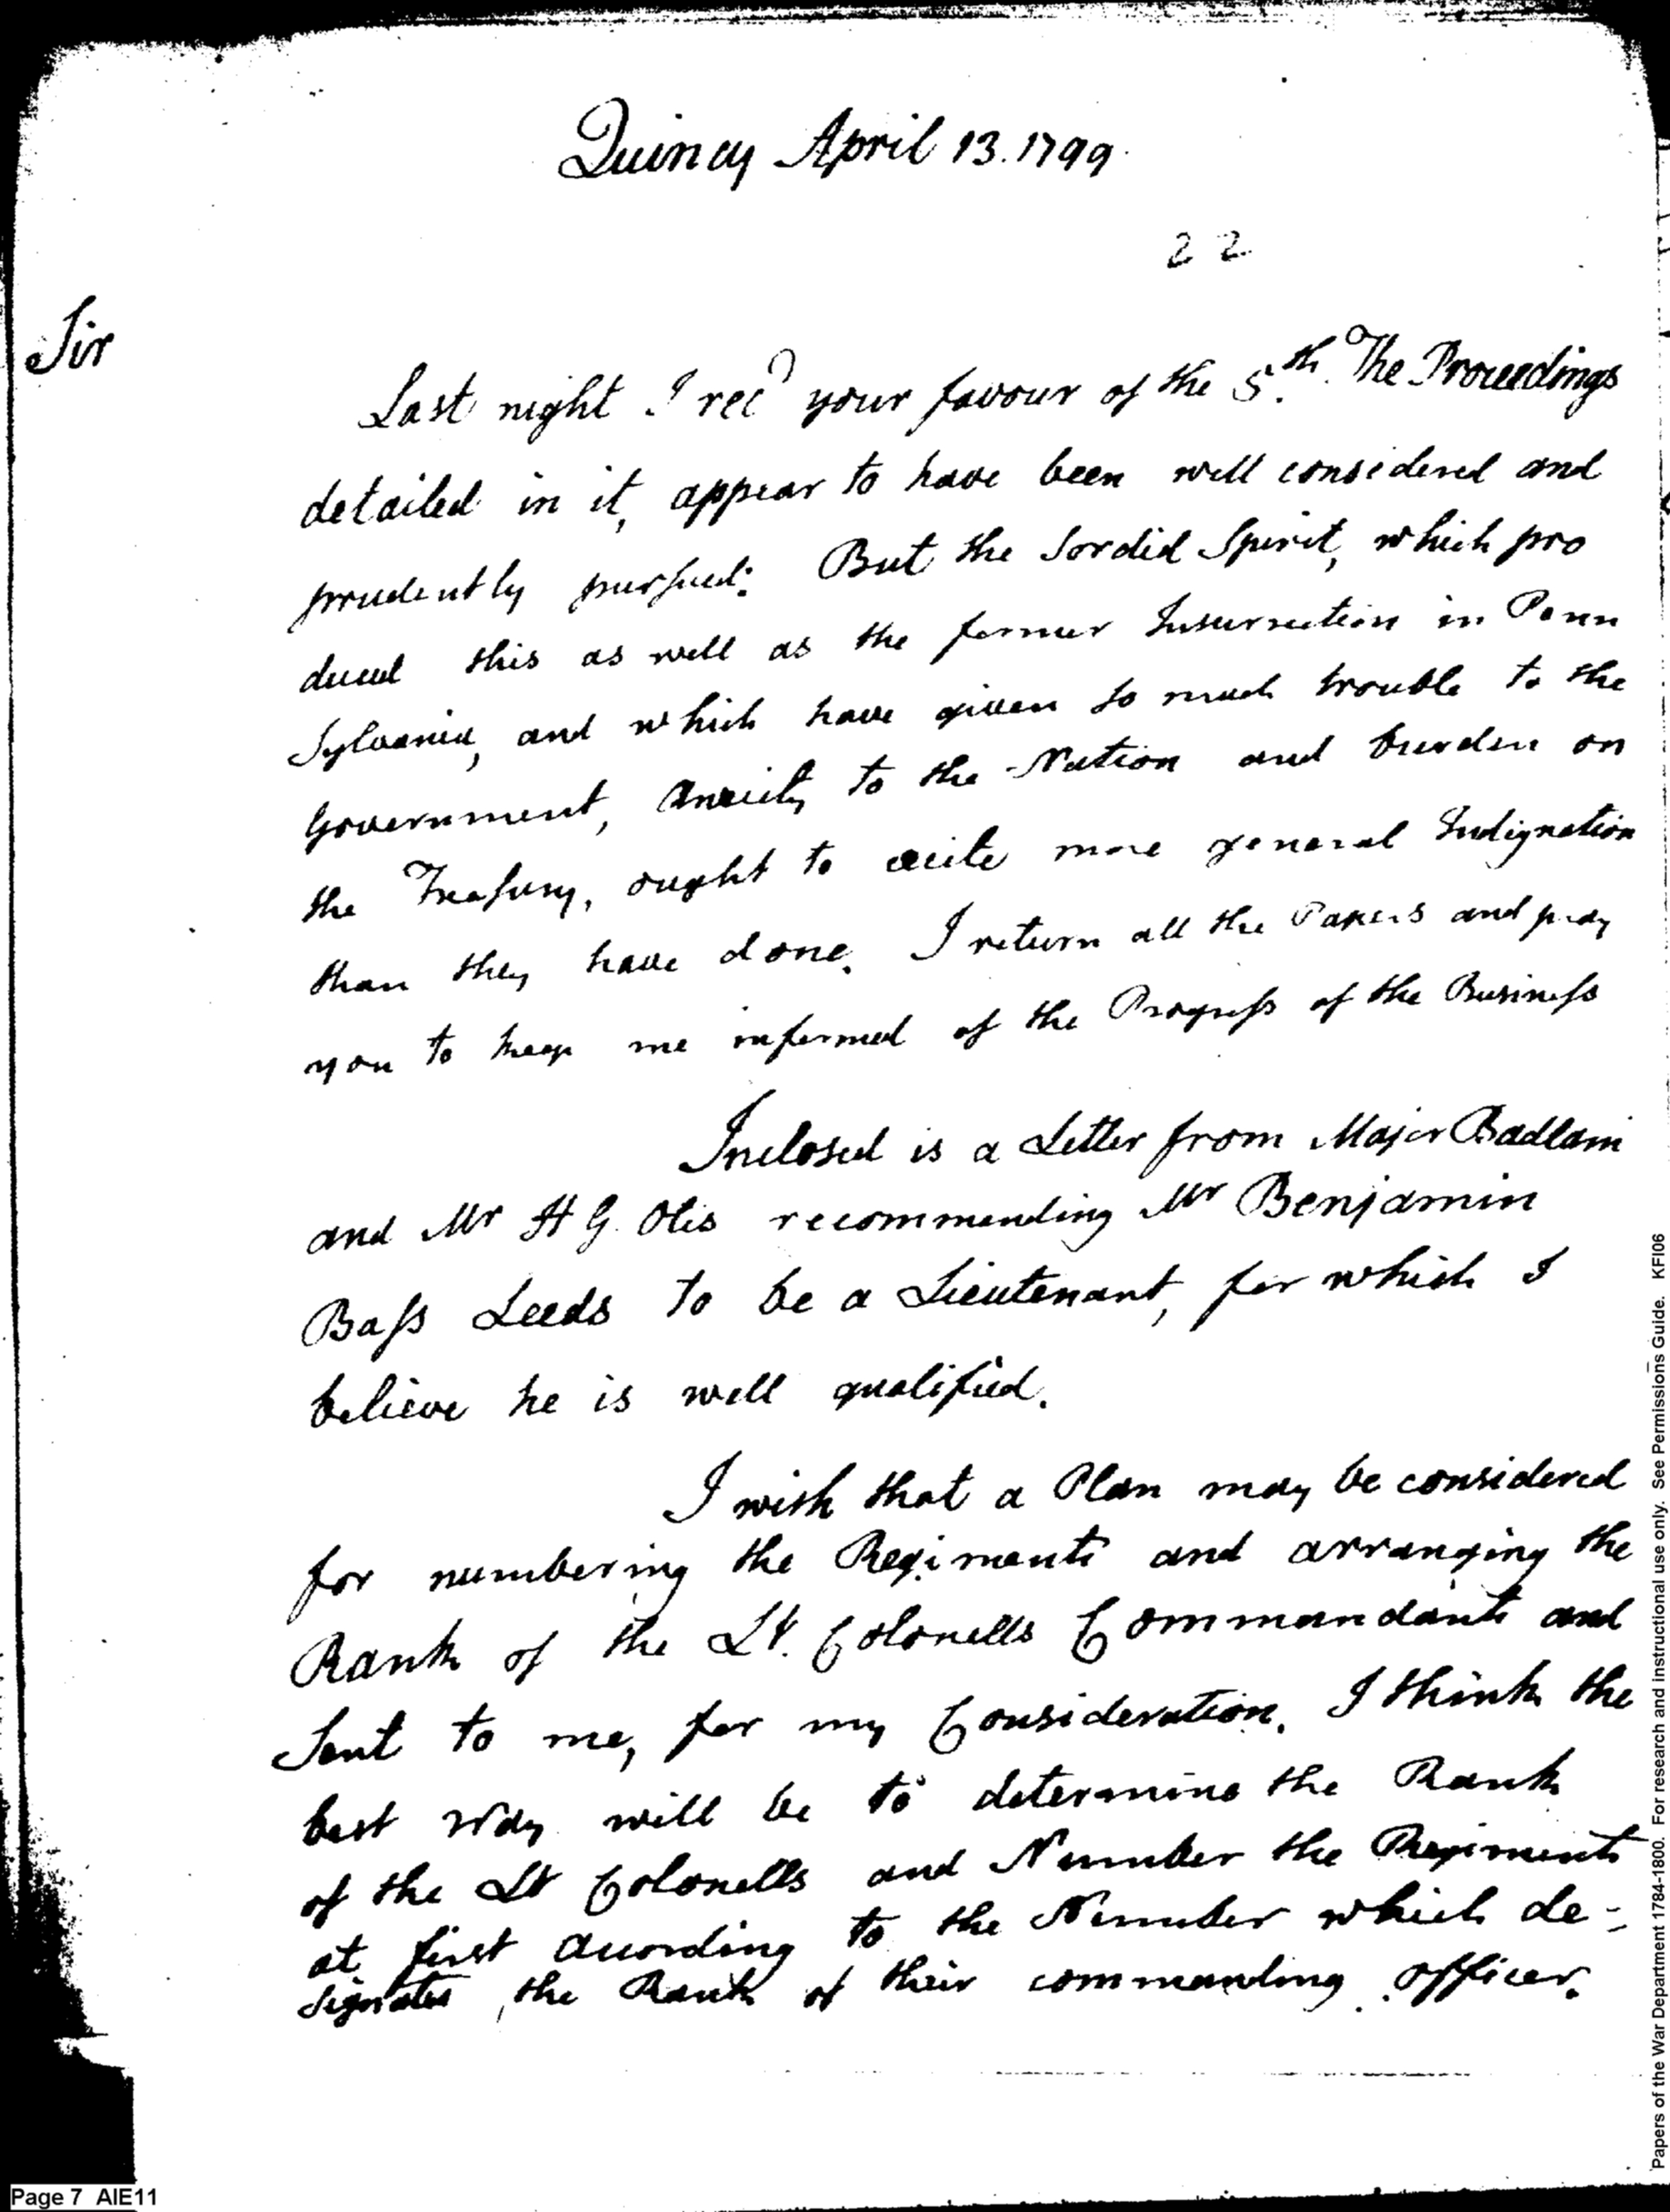 Quincy April 13. 1799.
22
Sir
Last night I recd your favour of the 5.th The Proceedings
detailed in it, appear to have been well considered and
prudently pursued. But the Sordid Spirit, which pro
duced this as well as the former Insurrection in Penn
Sylvania, and which have given so much trouble to the
Government, Anxiety to the Nation and burden on
the Treasury, ought to excite more general Indignation
than they have done. I return all the Papers and pray
you to keep me informed of the Progress of the Business
Inclosed is a Letter from Major Badlam
and Mr H G. Otis recommending Mr Benjamin
Bass Leeds to be a Lieutenant, for which I
believe he is well qualified.
I wish that a Plan may be considered
for numbering the Regiments and arranging the
Rank of the Lt. Colonells Commandants and
Sent to me, for my Consideration. I think the
best Way will be to determine the Rank
of the Lt Colonells and Number the Regiments
at first according to the Number which de-
signates the Rank of their commanding officer.
Papers of the War Department 1784-1800. For research and instructional use only. See Permissions Guide. KFI06
Page 7 AIE11